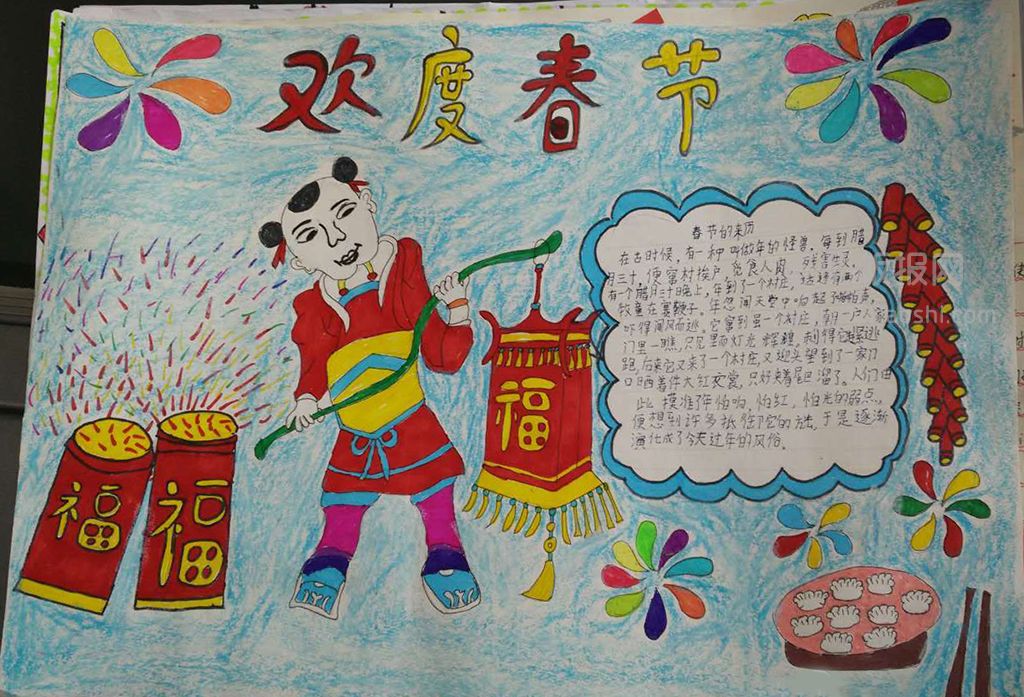 欢度春节
春节的来历
在古时候,有一种叫做年的怪兽。每到腊
月三十,便窜村挨户,觅食人肉,残害生灵,
有个腊月三十日晚上,年到了一个村庄,适逢有两个
牧童在赛鞭子。年忽闻天空中响起了啪啪声,
吓得闻风而逃。它窜到另一个村庄,朝一户人家
门里一瞧,只见里面灯光辉煌,刺得它
跑,后来它又来了一个村庄,又迎头望到了一家门
口晒着件大红衣裳,只好夹着尾巴溜了。人们由
此摸准了年怕响,怕红,怕光的弱点,
便想到许多抵御它的方法,于是逐渐
演化成了今天过年的风俗。
福
福
福
报网